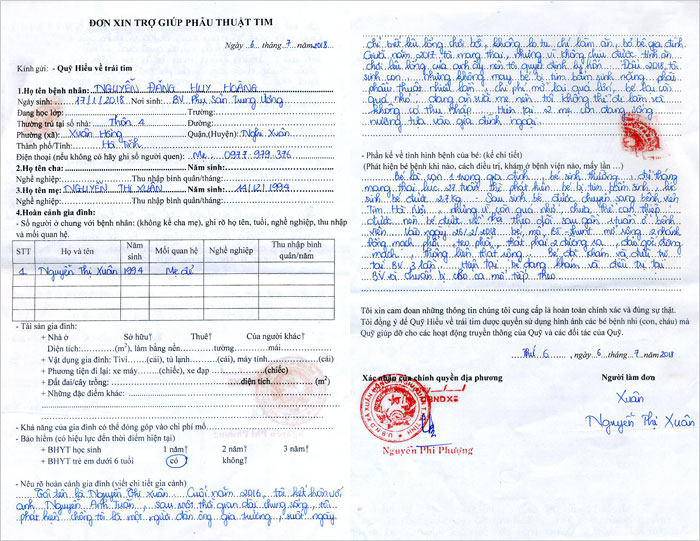 ĐƠN XIN TRỢ GIÚP PHẪU THUẬT TIM
Ngày ..6.. tháng..7..năm 2018..
Kính gửi: - Quỹ Hiểu về trái tim
1.Họ tên bệnh nhân: NGUYỄN ĐĂNG HUY HOÀNG
Ngày sinh: 17/1/2018 Nơi sinh: BV. Phụ Sản Trung Ương
Đang học lớp: Trường:
Thường trú tại số nhà: Thôn 4 Đường:
Phường (xã): Xuân Hồng Quận.(Huyện): Nghi Xuân
Thành phố/Tỉnh: Hà Tĩnh
Điện thoại (nếu không có hãy ghi số người quen): Mẹ: 0977.979.376
2.Họ tên cha: Năm sinh:
Nghề nghiệp: Thu nhập bình quân/tháng:
3.Họ tên mẹ: NGUYỄN THỊ XUÂN Năm sinh: 14/12/1994
Nghề nghiệp: Thu nhập bình quân/tháng:
4.Hoàn cảnh gia đình:
- Số người ở chung với bệnh nhân: (không kể cha mẹ), ghi rõ họ tên, tuổi, nghề nghiệp, thu nhập
và mối quan hệ.
STT Họ và tên Năm sinh Mối quan hệ Nghề nghiệp Thu nhập bình quân/năm
1 Nguyễn Thị Xuân 1994 Mẹ đẻ
- Tài sản gia đình:
+ Nhà ở Sở hữu↑ Thuê↑ Của người khác↑
Diện tích:(m²), làm bằng nền tường mái
+ Vật dụng gia đình: Tivi (cái), tủ lạnh (cái), máy tính (cái)
+ Phương tiện đi lại: xe máy (chiếc), xe đạp (chiếc)
+ Đất đai/cây trồng: diện tích (m²)
+ Những đặc điểm khác:
- Khả năng của gia đình có thể đóng góp vào chi phí mổ
- Bảo hiểm (có hiệu lực đến thời điểm hiện tại)
+ BHYT học sinh 1 năm↑ 2 năm↑ 3 năm↑
+ BHYT trẻ em dưới 6 tuổi có↑ không↑
- Nêu rõ hoàn cảnh gia đình (viết chi tiết gia cảnh)
Tôi tên là Nguyễn Thị Xuân. Cuối năm 2016, tôi kết hôn với
anh Nguyễn Anh Tuấn, sau một thời gian dài chung sống, tôi
phát hiện chồng tôi là một người đàn ông gia trưởng, suốt ngày
chỉ biết lêu lổng chơi bời, không lo tu chí làm ăn, bỏ bê gia đình.
Giữa năm 2017, tôi mang thai, nhưng vì không chịu được tính ăn
chơi lêu lổng của anh ấy nên tôi quyết định ly hôn. Đầu 2018, tôi
sinh con, nhưng không may bé bị tim bẩm sinh nặng, phải
phẫu thuật nhiều lần, chi phí mổ lại quá lớn, bé lại còn
quá nhỏ, đang ăn sữa mẹ nên tôi không thể đi làm và
không có thu nhập. Hiện tại 2 mẹ con đang sống
nương tựa vào gia đình ngoại.
- Phần kể về tình hình bệnh của bé: (kể chi tiết)
(Phát hiện bệnh khi nào, cách điều trị, khám ở bệnh viện nào, mấy lần…)
Bé là con 1 trong gia đình, bé sinh thường, chị tháng
mang thai lúc 27 tuần thì phát hiện bé bị tim bẩm sinh, lúc
sinh bé được 2,7 kg. Sau sinh bé được chuyển sang bệnh viện
Tim Hà Nội, nhưng vì còn quá nhỏ, chưa thể can thiệp
được nên bé được về nhà theo dõi sau gần 1 tuần ở bệnh
viện. Vào ngày 26/2/2018 bé mổ BS
động mạch phổi
mạch, thông liên thất rộng. Bé đợt khám và điều trị
tại BV 3 lần. Hiện tại bé đang khám và điều trị tại
BV và chuẩn bị cho ca mổ tiếp theo.
Tôi xin cam đoan những thông tin chúng tôi cung cấp là hoàn toàn chính xác và đúng sự thật.
Tôi đồng ý để Quỹ Hiểu về trái tim được quyền sử dụng hình ảnh các bé bệnh nhi (con, cháu) mà
Quỹ giúp đỡ cho các hoạt động truyền thông của Quỹ và các đối tác của Quỹ.
Thứ 6, ngày 6 tháng 7 năm 2018
Xác nhận của chính quyền địa phương Người làm đơn
UBND XÃ
Xuân
Nguyễn Thị Xuân
Nguyễn Phi Phượng